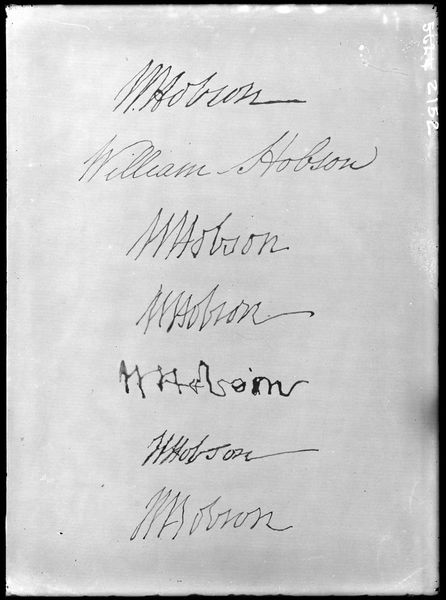 W. Hobson
William Hobson
W Hobson
W Hobson
W Hobson
W Hobson
W Hobson